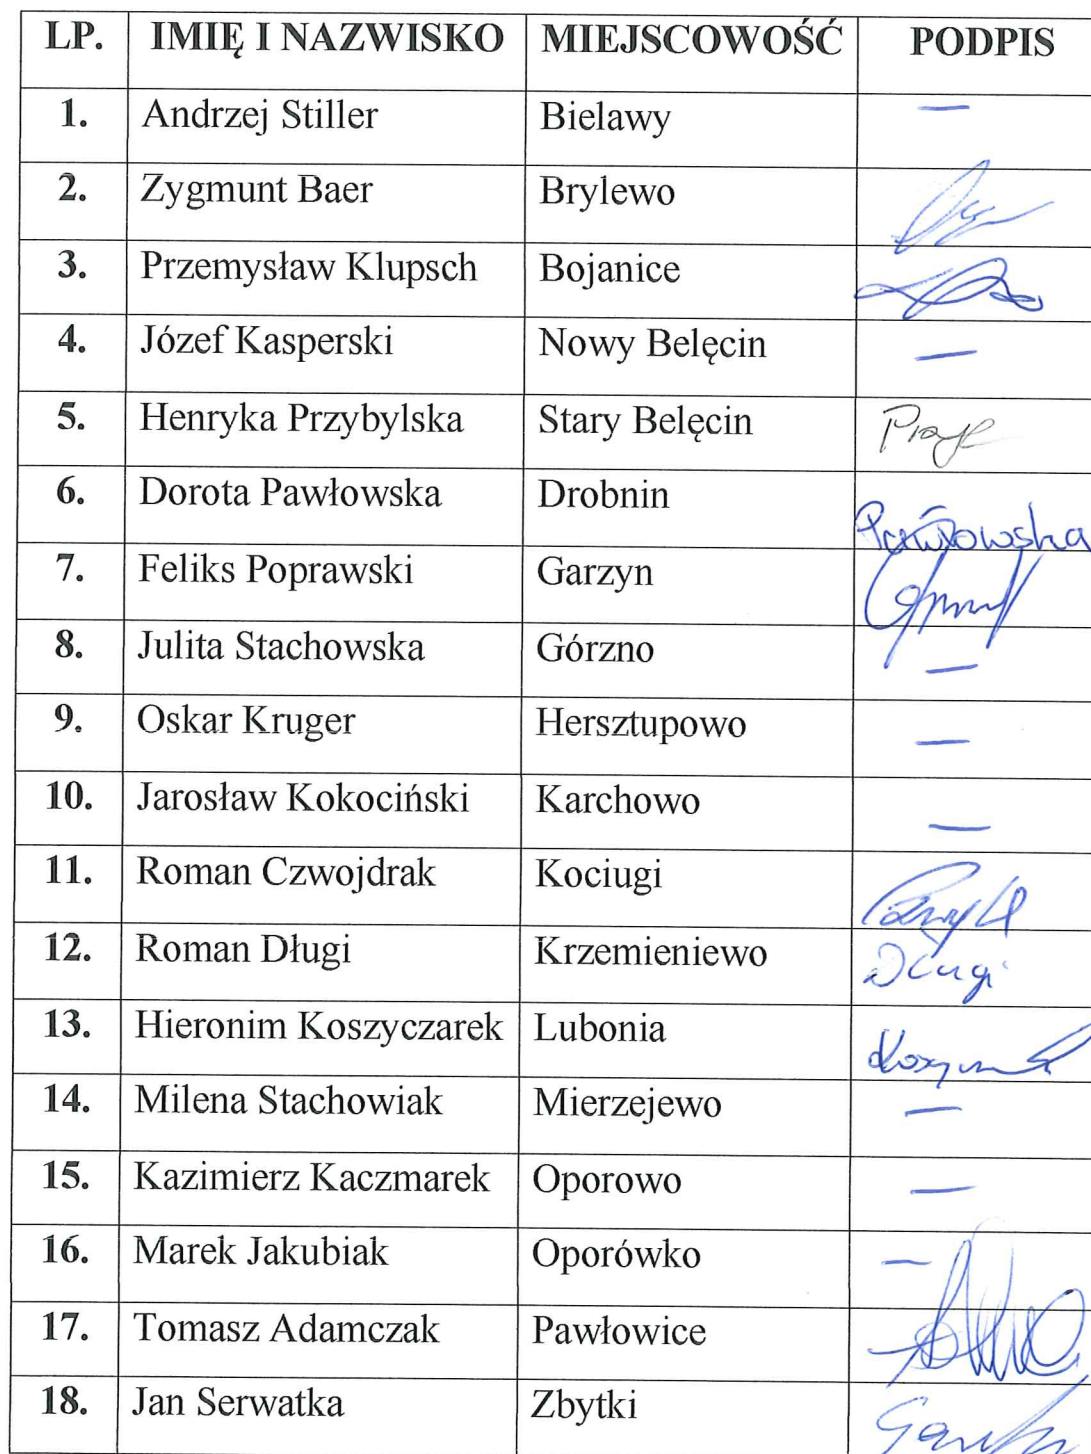 LP. IMIĘ I NAZWISKO MIEJSCOWOŚĆ PODPIS
1. Andrzej Stiller Bielawy —
2. Zygmunt Baer Brylewo
3. Przemysław Klupsch Bojanice
4. Józef Kasperski Nowy Belęcin —
5. Henryka Przybylska Stary Belęcin
6. Dorota Pawłowska Drobnin Pawłowska
7. Feliks Poprawski Garzyn
8. Julita Stachowska Górzno —
9. Oskar Kruger Hersztupowo —
10. Jarosław Kokociński Karchowo —
11. Roman Czwojdrak Kociugi
12. Roman Długi Krzemieniewo Długi
13. Hieronim Koszyczarek Lubonia
14. Milena Stachowiak Mierzejewo —
15. Kazimierz Kaczmarek Oporowo —
16. Marek Jakubiak Oporówko —
17. Tomasz Adamczak Pawłowice
18. Jan Serwatka Zbytki